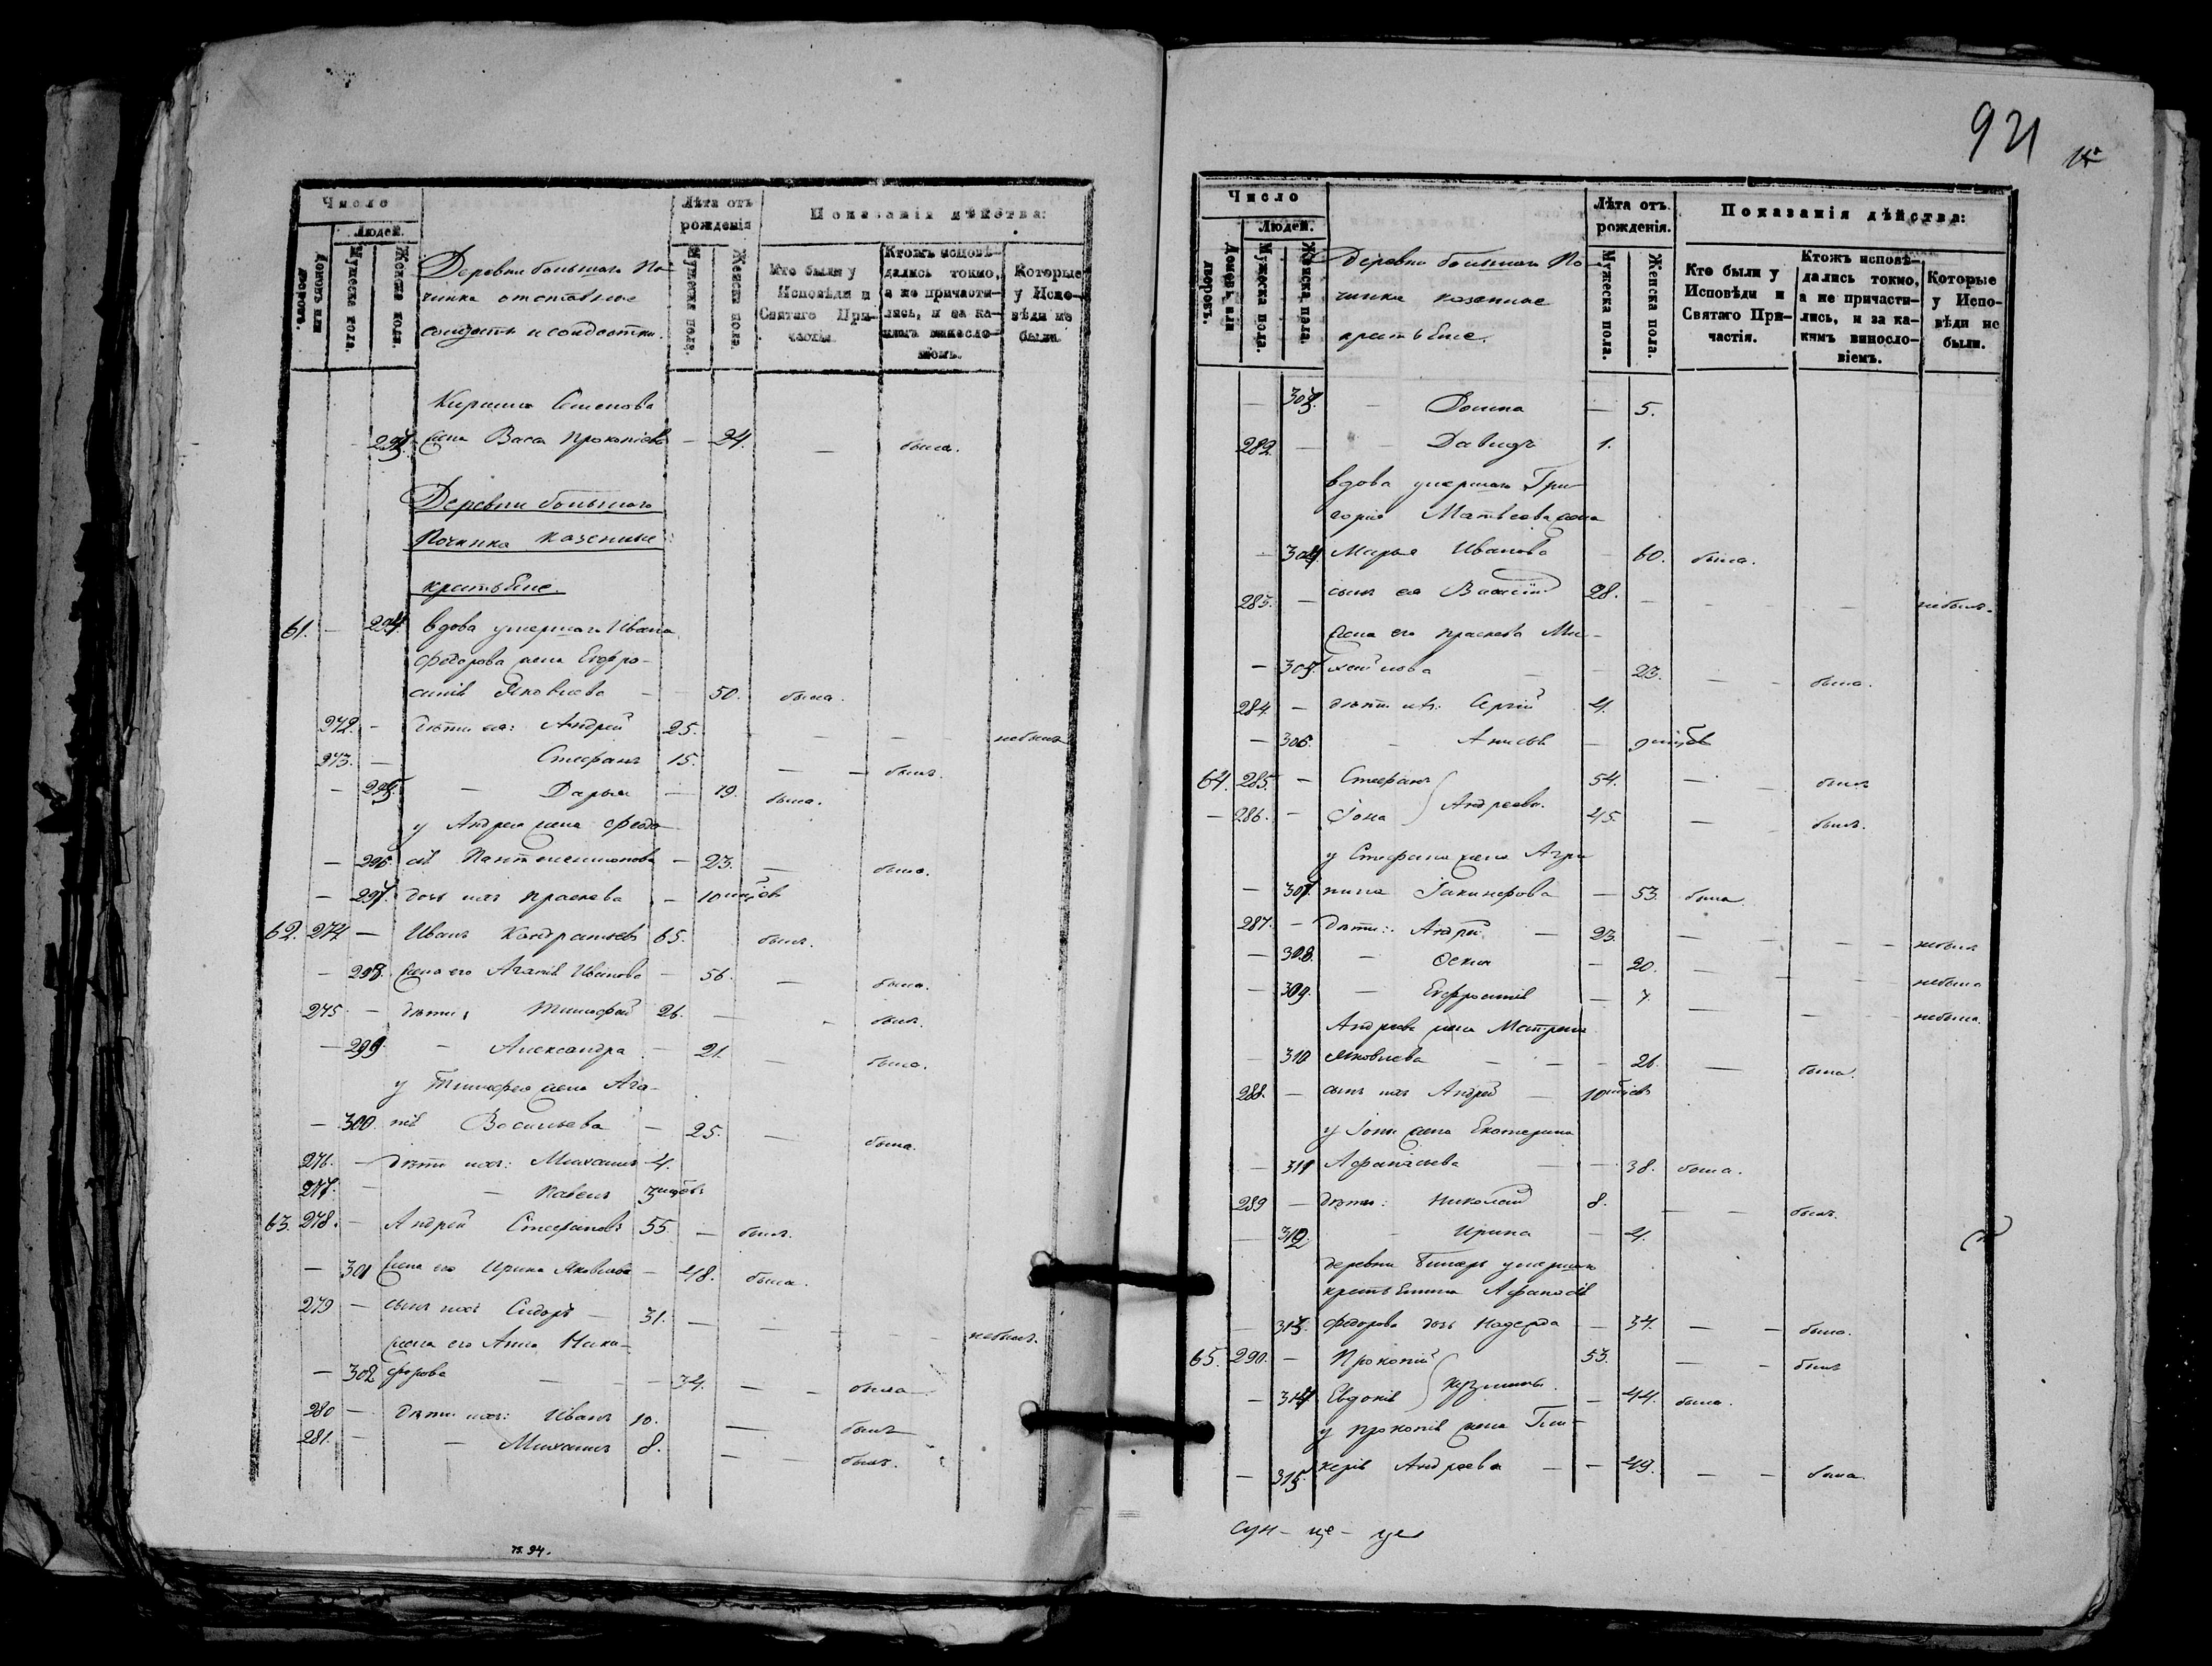 Число
Людей.
Домовъ или дворовъ.
Мужеска пола.
Женска пола.
Деревни большаго По-
чинка отставные
солдаты и солдатки.
Лѣта отъ рожденія
Мужеска пола.
Женска пола.
Показанія дѣйства:
Кто были у Исповѣди и Святаго Причастія.
Ктожъ исповѣдались токмо, а не причастились, и за какимъ винословіемъ.
Которые у Исповѣди не были.
Кирила Семенова
293. жена Васа Прокопіева — 24. — была.
Деревни большаго
Починка казенные
крестьяне.
61. — 294. вдова умершаго Ивана
Федорова жена Евфро-
синія Яковлева — 50. была.
272. — дѣти ея: Андрей 25. — — — небылъ
273. — Стефанъ 15. — — былъ.
— 295. — Дарья — 19. была.
у Андрея жена Федо-
— 296. сія Пантелеимонова — 23. — была.
— 297. дочь ихъ Праскева — 10 мѣсяцев
62. 274 — Иванъ Кондратьевъ 65. былъ.
— 298. жена его Агафія Иванова — 56. — была.
275 — дѣти: Тимофей 26. — - былъ.
— 299 - Александра — 21. — была.
у Тимофея жена Ага-
— 300. пія Васильева — 25. — была.
276. — дѣти ихъ: Михаилъ 4.
277. — — Павелъ 3 мѣсяцовъ
63. 278. — Андрей Стефановъ 55. — былъ.
— 301 жена его Ирина Яковлева — 48. была.
279 — сынъ ихъ Сидоръ — 31. — — — небылъ.
жена его Анна Ники-
— 302 форова — — - 34. — - была
280 — дѣти ихъ: Иванъ 10. — былъ
281. — — Михаилъ 8. — — былъ.
921
Число
Людей.
Домовъ или дворовъ.
Мужеска пола.
Женска пола.
Деревни большаго По-
чинка казенные
крестьяне.
Лѣта отъ рожденія.
Мужеска пола.
Женска пола.
Показанія дѣйства:
Кто были у Исповѣди и Святаго Причастія.
Ктожъ исповѣдались токмо, а не причастились, и за какимъ винословіемъ.
Которые у Исповѣди не были.
— 303. — Домна — 5.
282. — - Давидъ 1.
вдова умершаго Гри-
горія Матвѣева жена
— 304. Марья Иванова — 60. была.
283. — сынъ ея Василій 28. — — — небылъ.
жена его Праскева Ми-
— 305. хайлова — 23. — - была.
284. — дѣти ихъ: Сергій 4.
— 306. - Анисія — 9 мѣсяцев
64. 285. — Стефанъ 54. — - былъ
— 286. — Іона Андреевы. 45. — былъ.
у Стефана жена Агри-
— 307. пина Іакинфова — 53. была.
287. — дѣти: Андрей — 23. — - — - небылъ
— 308. — Фекла — 20. — — — небыла
— 309. — Евфросинія — 7. — — — небыла.
Андреева жена Матрена
— 310 Яковлева — — - 26. — была.
288. — сынъ ихъ Андрей — 10 мѣсяцевъ
у Іоны жена Екатерина
— 311 Афанасьева — — 38. была.
289 — дѣти: Николай 8. — — былъ.
— 312. - Ирина — 4.
деревни умершаго
крестьянина Афанасія
— 313. Федорова дочь Надежда — 34. — — была.
65. 290. — Прокопій 53. — - былъ
— 314 Евдокія Кузмины. — 44. была.
у Прокопія жена Гли-
— 315. керія Андреева — — 49. — — была.